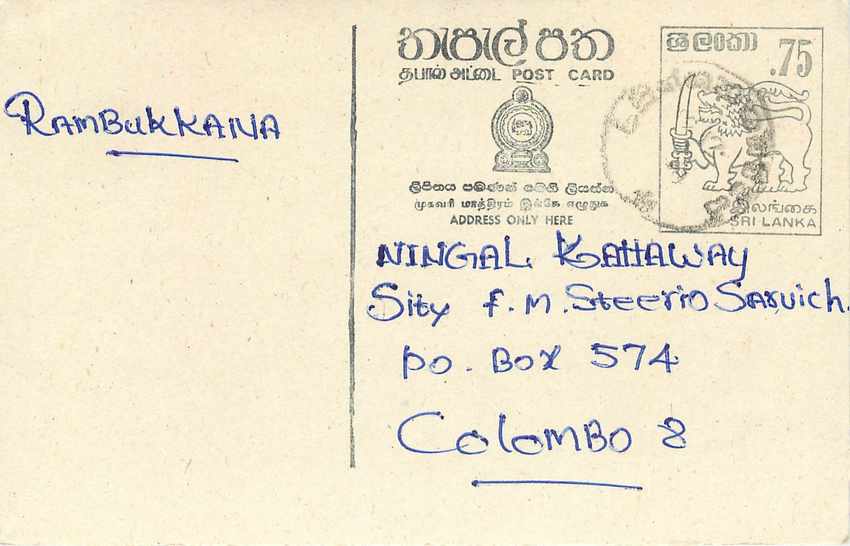 RAMBUKKANA
තැපැල් පත
தபால் அட்டை POST CARD
ලිපිනය පමණක් මෙහි ලියන්න
முகவரி மாத்திரம் இங்கே எழுதுக
ADDRESS ONLY HERE
ශ්‍රී ලංකා
.75
இலங்கை
SRI LANKA
NINGAL KAHAWAY
Sity F.M. Steerio Saruich.
PO. BOX 574
COLOMBO 8